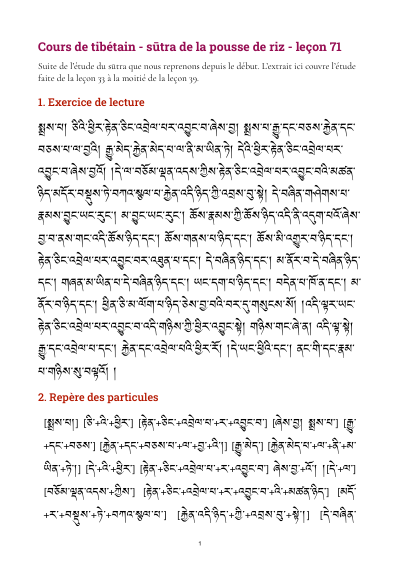 Cours de tibétain - sūtra de la pousse de riz - leçon 71
Suite de l'étude du sūtra que nous reprenons depuis le début. L'extrait ici couvre l'étude
faite de la leçon 33 à la moitié de la leçon 39.
1. Exercice de lecture
སྨྲས་པ། ཅིའི་ཕྱིར་རྟེན་ཅིང་འབྲེལ་པར་འབྱུང་བ་ཞེས་བྱ། སྨྲས་པ་རྒྱུ་དང་བཅས་རྐྱེན་དང་
བཅས་པ་ལ་བྱའི། རྒྱུ་མེད་རྐྱེན་མེད་པ་ལ་ནི་མ་ཡིན་ཏེ། དེའི་ཕྱིར་རྟེན་ཅིང་འབྲེལ་པར་
འབྱུང་བ་ཞེས་བྱའོ། །དེ་ལ་བཅོམ་ལྡན་འདས་ཀྱིས་རྟེན་ཅིང་འབྲེལ་པར་འབྱུང་བའི་མཚན་
ཉིད་མདོར་བསྡུས་ཏེ་བཀའ་སྩལ་པ་རྐྱེན་འདི་ཉིད་ཀྱི་འབྲས་བུ་སྟེ། དེ་བཞིན་གཤེགས་པ་
རྣམས་བྱུང་ཡང་རུང་། མ་བྱུང་ཡང་རུང་། ཆོས་རྣམས་ཀྱི་ཆོས་ཉིད་འདི་ནི་འདུག་པའོ་ཞེས་
བྱ་བ་ནས་གང་འདི་ཆོས་ཉིད་དང་། ཆོས་གནས་པ་ཉིད་དང་། ཆོས་མི་འགྱུར་བ་ཉིད་དང་།
རྟེན་ཅིང་འབྲེལ་པར་འབྱུང་བར་འཐུན་པ་དང་། དེ་བཞིན་ཉིད་དང་། མ་ནོར་བ་དེ་བཞིན་ཉིད་
དང་། གཞན་མ་ཡིན་པ་དེ་བཞིན་ཉིད་དང་། ཡང་དག་པ་ཉིད་དང་། བདེན་པ་ཁོ་ན་དང་། མ་
ནོར་བ་ཉིད་དང་། ཕྱིན་ཅི་མ་ལོག་པ་ཉིད་ཅེས་བྱ་བའི་བར་དུ་གསུངས་སོ། །འདི་ལྟར་ཡང་
རྟེན་ཅིང་འབྲེལ་པར་འབྱུང་བ་འདི་གཉིས་ཀྱི་ཕྱིར་འབྱུང་སྟེ། གཉིས་གང་ཞེ་ན། འདི་ལྟ་སྟེ།
རྒྱུ་དང་འབྲེལ་པ་དང་། རྐྱེན་དང་འབྲེལ་པའི་ཕྱིར་རོ། །དེ་ཡང་ཕྱིའི་དང་། ནང་གི་དང་རྣམ་
པ་གཉིས་སུ་བལྟའོ། །
2. Repère des particules
[སྨྲས་པ།] [ཅི་+འི་+ཕྱིར་] [རྟེན་+ཅིང་+འབྲེལ་པ་+ར་+འབྱུང་བ་] [ཞེས་བྱ། སྨྲས་པ་] [རྒྱུ་
+དང་+བཅས་] [རྐྱེན་+དང་+བཅས་པ་+ལ་+བྱ་+འི།] [རྒྱུ་མེད་] [རྐྱེན་མེད་པ་+ལ་+ནི་+མ་
ཡིན་+ཏེ།] [དེ་+འི་+ཕྱིར་] [རྟེན་+ཅིང་+འབྲེལ་པ་+ར་+འབྱུང་བ་] ཞེས་བྱ་+འོ། །[དེ་+ལ་]
[བཅོམ་ལྡན་འདས་+ཀྱིས་] [རྟེན་+ཅིང་+འབྲེལ་པ་+ར་+འབྱུང་བ་+འི་+མཚན་ཉིད་] [མདོ་
+ར་+བསྡུས་+ཏེ་+བཀའ་སྩལ་པ་] [རྐྱེན་འདི་ཉིད་+ཀྱི་+འབྲས་བུ་+སྟེ།] [དེ་བཞིན་
1